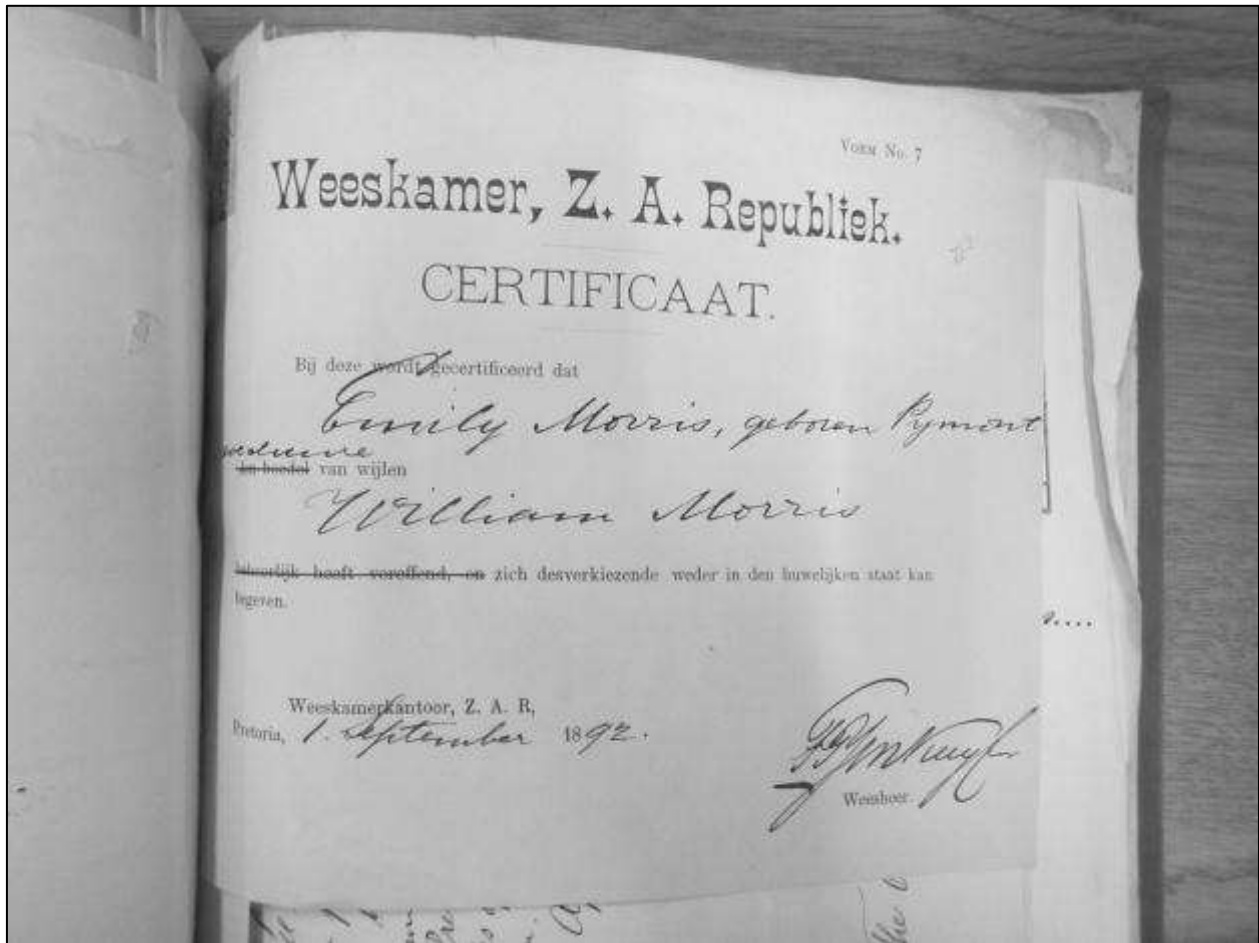 VORM No. 7
Weeskamer, Z. A. Republiek.
CERTIFICAAT.
Bij deze wordt gecertificeerd dat
Emily Morris, geboren Pymont
weduwe
den boedel van wijlen
William Morris
behoorlijk heeft vereffend, en zich desverkiezende weder in den huwelijken staat kan
begeven.
Weeskamerkantoor, Z. A. R,
Pretoria, 1. September 1892.
Weesheer.